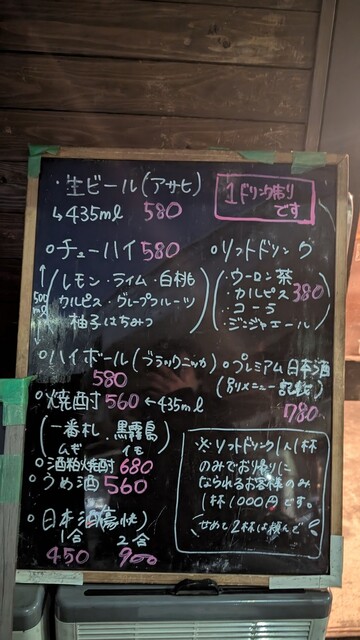 ・生ビール(アサヒ)
↳435ml 580
1ドリンク制り
です
○チューハイ580
500ml
(レモン・ライム・白桃
カルピス・グレープフルーツ
柚子はちみつ)
○ソフトドリンク
(・ウーロン茶
・カルピス
・コーラ
・ジンジャエール)
380
○ハイボール(ブラックニッカ)
580
○プレミアム日本酒
(別メニュー記載)
780
○焼酎560←435ml
(一番札、黒霧島)
ムギ イモ
○酒粕焼酎680
○うめ酒560
○日本酒(豪快)
1合 2合
450 900
※ソフトドリンク1人1杯
のみでお帰りに
なられるお客様のみ
1杯1000円です。
せめて2杯は頼んで